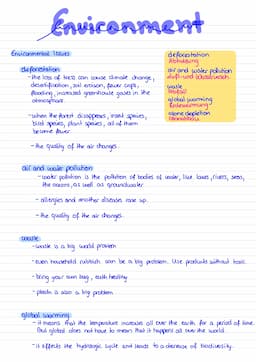 Environment
Environmental Issues
deforestation
- the loss of trees can cause climate change,
desertification, soil erosion, fewer crops,
flooding, increased greenhouse gases in the
atmosphere.
- when the forest disappears, insect species,
bird species, plant species, all of them
become fewer.
- the quality of the air changes.
air and water pollution
- water pollution is the pollution of bodies of water, like lakes, rivers, seas,
the oceans, as well as groundwater
- allergies and other diseases rase up.
- the quality of the air changes.
waste
- waste is a big world problem
- even household rubbish can be a big problem. Use products without toxic.
- bring your own bag, eath healthy
- plastic is also a big problem
global warming
- it means that the temperature increases all over the earth for a period of time.
But global does not have to mean that it happens all over the world.
- it effects the hydrologic cycle and leads to a decrease of biodiversity.
deforestation
Abholzung
air and water pollution
Luft- und
waste
Abfall
global warming
Erderwärmung
ozone depletion